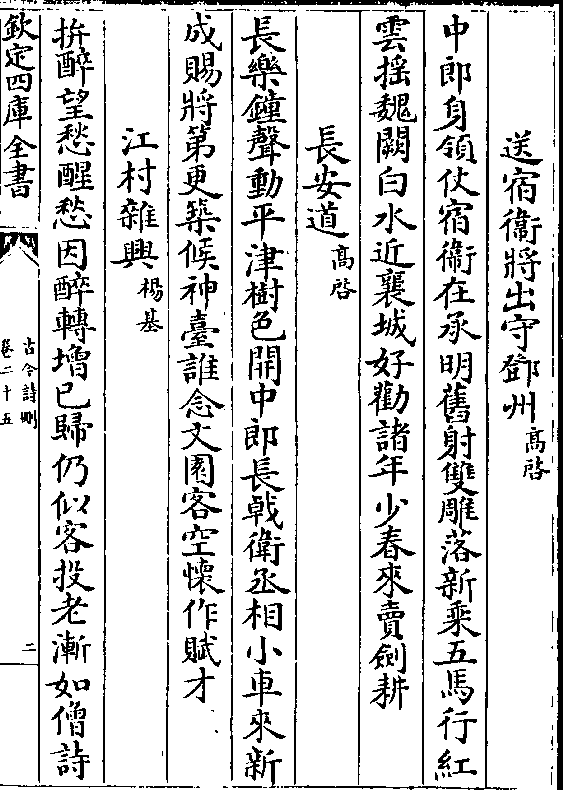 送宿衞將出守鄧州 髙啓
中郎身領仗宿衞在承明舊射雙雕落新乘五馬行紅
雲揺魏闕白水近襄城好勸諸年少春來賣劍耕
長安道 髙啓
長樂鐘聲動平津樹色開中郎長戟衛丞相小車來新
成賜將第更築候神臺誰念文園客空懷作賦才
江村雜興 楊基
拚醉望愁醒愁因醉轉増已歸仍似客投老漸如僧詩
欽定四庫全書
古今詩刪
卷二十五
二